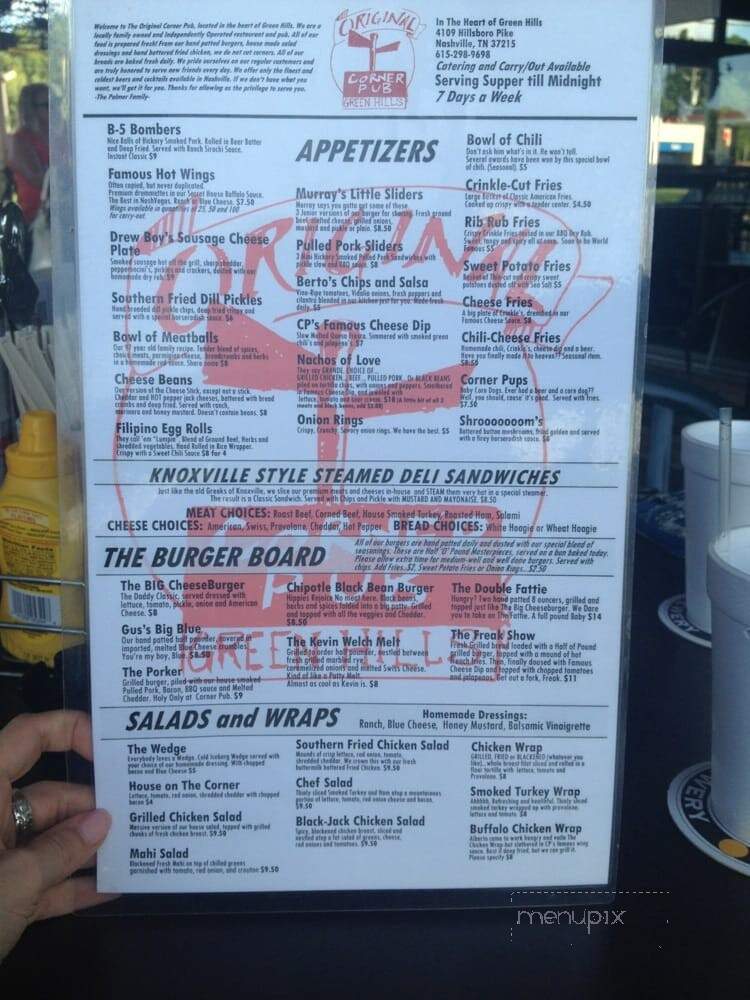 Welcome to The Original Corner Pub, located in the heart of Green Hills. We are a
locally family owned and independently Operated restaurant and pub. All of our
food is prepared fresh! From our hand patted burgers, house made salad
dressings and hand battered fried chicken, we do not cut corners. All of our
breads are baked fresh daily. We pride ourselves on our regular customers and
are truly honored to serve new friends every day. We offer only the finest and
coldest beers and cocktails available in Nashville. If we don't have what you
want, we'll get it for you. Thanks for allowing us the privilege to serve you.
-The Palmer Family-
ORIGINAL
CORNER
PUB
GREEN HILLS
In The Heart of Green Hills
4109 Hillsboro Pike
Nashville, TN 37215
615-298-9698
Catering and Carry/Out Available
Serving Supper till Midnight
7 Days a Week
APPETIZERS
B-5 Bombers
Nice Balls of Hickory Smoked Pork. Rolled in Beer Batter
and Deep Fried. Served with Ranch Sirachi Sauce.
Instant Classic $9
Famous Hot Wings
Often copied, but never duplicated.
Premium drummettes in our Secret House Buffalo Sauce.
The Best in NashVegas. Ranch or Blue Cheese. $7.50
Wings available in quantities of 25, 50 and 100
for carry-out
Drew Boy's Sausage Cheese
Plate
Smoked sausage hot off the grill, sharp cheddar,
pepperoncini's, pickles and crackers, dusted with our
homemade dry rub. $9
Southern Fried Dill Pickles
Hand breaded dill pickle chips, deep fried crispy and
served with a special horseradish sauce. $6
Bowl of Meatballs
Our 97 year old family recipe. Tender blend of spices,
choice meats, parmigian cheese, breadcrumbs and herbs
in a homemade red sauce. Share some $8
Cheese Beans
Our version of the Cheese Stick, except not a stick.
Cheddar and HOT pepper jack cheeses, battered with bread
crumbs and deep fried. Served with ranch,
marinara and honey mustard. Doesn't contain beans. $8
Filipino Egg Rolls
They call 'em "Lumpia". Blend of Ground Beef, Herbs and
shredded vegetables, Hand Rolled in Rice Wrapper.
Crispy with a Sweet Chili Sauce $8 for 4
Murray's Little Sliders
Murray says you gotta get some of these
3 Junior versions of our burger for sharing. Fresh ground
beef, melted cheese, grilled onions,
mustard and pickle or plain. $8.50
Pulled Pork Sliders
3 Mini Hickory Smoked Pulled Pork Sandwiches with
pickle slaw and BBQ sauce. $8
Berto's Chips and Salsa
Vine-Ripe tomatoes, Vidalia onions, fresh peppers and
cilantro blended in our kitchen just for you. Made fresh
daily. $5
CP's Famous Cheese Dip
Slow Melted Queso Fresca. Simmered with smoked green
chili's and jalapenos $7
Nachos of Love
They say GRANDE, CHOICE OF...
GRILLED CHICKEN, BEEF, PULLED PORK, Or BLACK BEANS
piled on tortilla chips, with onions and peppers. Smothered
in Famous Cheese Dip, and crowded with
lettuce, tomato and sour cream. $10 (A little bit of all 3
meats and black beans, add $2.00)
Onion Rings
Crispy, Crunchy, Savory onion rings. We have the best. $5
Bowl of Chili
Don't ask him what's in it. He won't tell.
Several awards have been won by this special bowl
of chili. (Seasonal). $5
Crinkle-Cut Fries
Large Basket of Classic American Fries.
Cooked up crispy with a tender center. $4.50
Rib Rub Fries
Crispy Crinkle Fries tossed in our BBQ Dry Rub.
Sweet, tangy and spicy all at once. Soon to be World
Famous $5
Sweet Potato Fries
Basket of Thin-cut and crispy sweet
potatoes dusted with Sea Salt $5
Cheese Fries
A big plate of Crinkle's, drenched in our
Famous Cheese Sauce. $8
Chili-Cheese Fries
Homemade chili, Crinkle's, cheese dip and a beer.
Have you finally made it to heaven?? Seasonal item.
$8.50
Corner Pups
Baby Corn Dogs. Ever had a beer and a corn dog??
Well, you should, cause' it's good. Served with fries.
$7.50
Shroooooom's
Battered button mushrooms, fried golden and served
with a firey horseradish sauce. $6
KNOXVILLE STYLE STEAMED DELI SANDWICHES
Just like the old Greeks of Knoxville, we slice our premium meats and cheeses in-house and STEAM them very hot in a special steamer.
The result is a Classic Sandwich. Served with Chips and Pickle with MUSTARD AND MAYONAISE. $8.50
MEAT CHOICES: Roast Beef, Corned Beef, House Smoked Turkey, Roasted Ham, Salami
CHEESE CHOICES: American, Swiss, Provolone, Cheddar, Hot Pepper BREAD CHOICES: White Hoagie or Wheat Hoagie
THE BURGER BOARD
All of our burgers are hand patted daily and dusted with our special blend of
seasonings. These are Half 'O' Pound Masterpieces, served on a bun baked today.
Please allow extra time for medium-well and well done burgers. Served with
chips. Add Fries..$2, Sweet Potato Fries or Onion Rings...$2.50
The BIG CheeseBurger
The Daddy Classic, served dressed with
lettuce, tomato, pickle, onion and American
Cheese. $8
Gus's Big Blue
Our hand patted half pounder, covered in
imported, melted Blue Cheese crumbles.
You're my boy, Blue. $8.50
The Porker
Grilled burger, piled with our house smoked
Pulled Pork, Bacon, BBQ sauce and Melted
Cheddar. Holy Only at Corner Pub. $9
Chipotle Black Bean Burger
Hippies Rejoice No meat here. Black beans,
herbs and spices folded into a big patty. Grilled
and topped with all the veggies and Cheddar.
$8.50
The Kevin Welch Melt
Grilled quarder half pounder, nestled between
fresh grilled marbled rye,
caramelized onions and melted Swiss Cheese.
Kind of like a Patty Melt.
Almost as cool as Kevin is. $8
The Double Fattie
Hungry? Two hand patted 8 ouncers, grilled and
topped just like The Big Cheeseburger. We Dare
you to take on The Fattie. A full pound Baby $14
The Freak Show
Fresh Grilled Bread loaded with a Half of Pound
grilled burger, topped with a mound of hot
French fries. Then, finally doused with Famous
Cheese Dip and topped with chopped tomatoes
and jalapenos. Get out a fork, Freak. $11
SALADS and WRAPS
Homemade Dressings:
Ranch, Blue Cheese, Honey Mustard, Balsamic Vinaigrette
The Wedge
Everybody loves a Wedge. Cold Iceberg Wedge served with
your choice of our homemade dressing. With chopped
bacon and Blue Cheese $5
House on The Corner
Lettuce, tomato, red onion, shredded cheddar with chopped
bacon $4
Grilled Chicken Salad
Massive version of our house salad, topped with grilled
chunks of fresh chicken breast. $9.50
Mahi Salad
Blackened Fresh Mahi on top of chilled greens
garnished with tomato, red onion, and crouton $9.50
Southern Fried Chicken Salad
Mounds of crisp lettuce, red onion, tomato,
shredded cheddar. We crown this with our fresh
buttermilk battered Fried Chicken. $9.50
Chef Salad
Thinly sliced Smoked Turkey and Ham atop a mountainous
portion of lettuce, tomato, red onion cheese and bacon.
$9.50
Black-Jack Chicken Salad
Spicy, blackened chicken breast, sliced and
nestled atop a fat salad of greens, cheese,
red onions and tomatoes. $9.50
Chicken Wrap
GRILLED, FRIED or BLACKENED (whatever you
like), whole breast filet sliced and rolled in a
flour tortilla with lettuce, tomato and
Provolone. $8
Smoked Turkey Wrap
Ahhhhh, Refreshing and healthful. Thinly sliced
smoked turkey wrapped up with provolone,
lettuce and tomato $8
Buffalo Chicken Wrap
Alberto came to work hungry and voila The
Chicken Wrap but slathered in CP's famous wing
sauce. Best if deep fried, but we can grill it.
Please specify $8
menupix